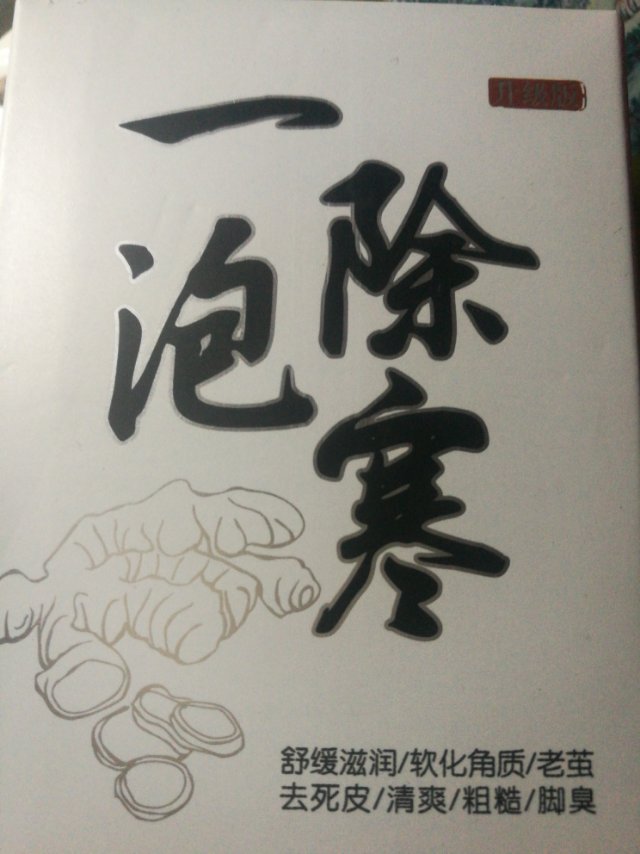 升级版
一泡
除寒
舒缓滋润/软化角质/老茧
去死皮/清爽/粗糙/脚臭